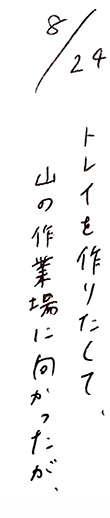 8/24
トレイを作りたくて、
山の作業場に向かったが、